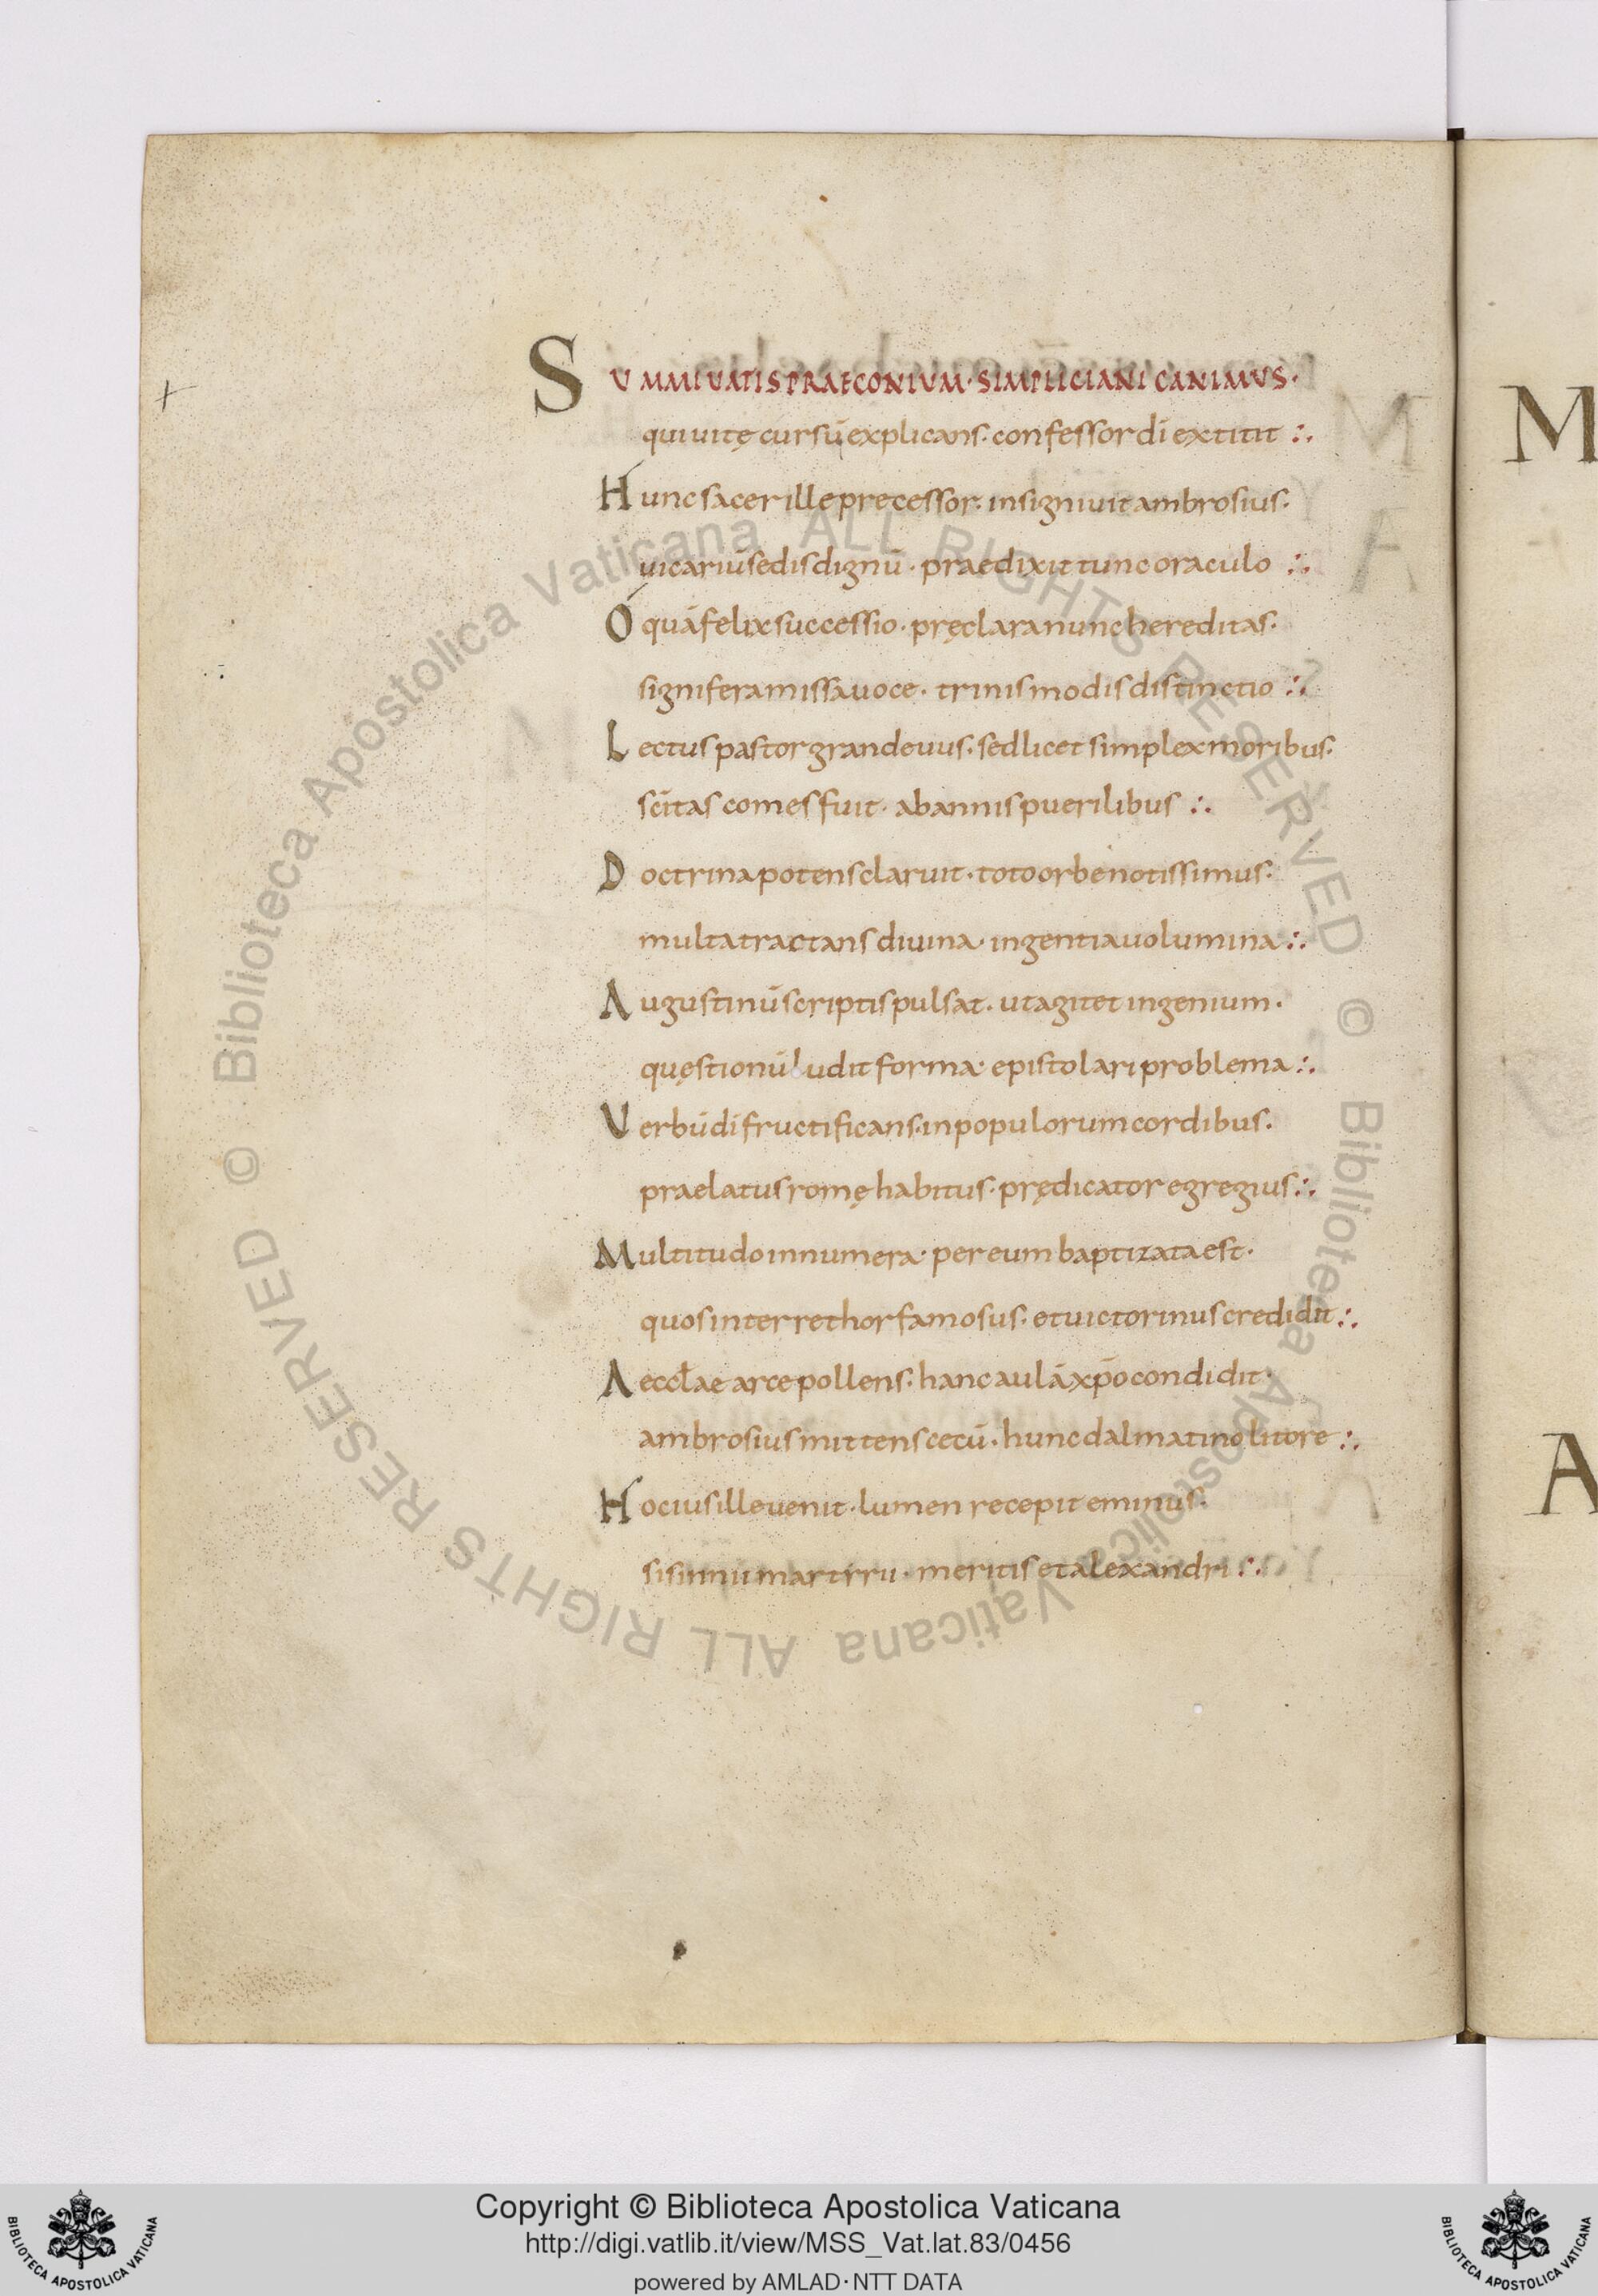 SUMMI UATIS PRAECONIUM· SIMPLICIANI CANIMUS·
qui uitę cursū explicans· confessor dī extitit :·
Hunc sacer ille precessor· insigniuit ambrosius·
uicariū sedis dignū· praedixit tunc oraculo :·
Ó quā felix successio· pręclara nunc hereditas·
signifera missa uoce· trinis modis distinctio :·
Lectus pastor grandeuus· sed licet simplex moribus·
scītas comes fuit· ab annis puerilibus :·
Doctrina potens claruit· toto orbe notissimus·
multa tractans diuina· ingentia uolumina :·
Augustinū scriptis pulsat· ut agitet ingenium·
quęstionū ludit forma· epistolari problema :·
Verbū dī fructificans· in populorum cordibus·
praelatus romę habitus· prędicator egregius :·
Multitudo innumera· per eum baptizata est·
quos inter rethor famosus· et uictorinus credidit :·
Aeccłae arce pollens· hanc aulā xp̄o condidit·
ambrosius mittens cecū· hunc dalmatino litore :·
Hoc ius ille uenit· lumen recepit eminus·
sisinnii martyru· meritis et alexandri :·
M
A
© Biblioteca Apostolica Vaticana ALL RIGHTS RESERVED © Biblioteca Apostolica Vaticana ALL RIGHTS RESERVED
Copyright © Biblioteca Apostolica Vaticana
http://digi.vatlib.it/view/MSS_Vat.lat.83/0456
powered by AMLAD·NTT DATA
BIBLIOTECA APOSTOLICA VATICANA
BIBLIOTECA APOSTOLICA VATICANA